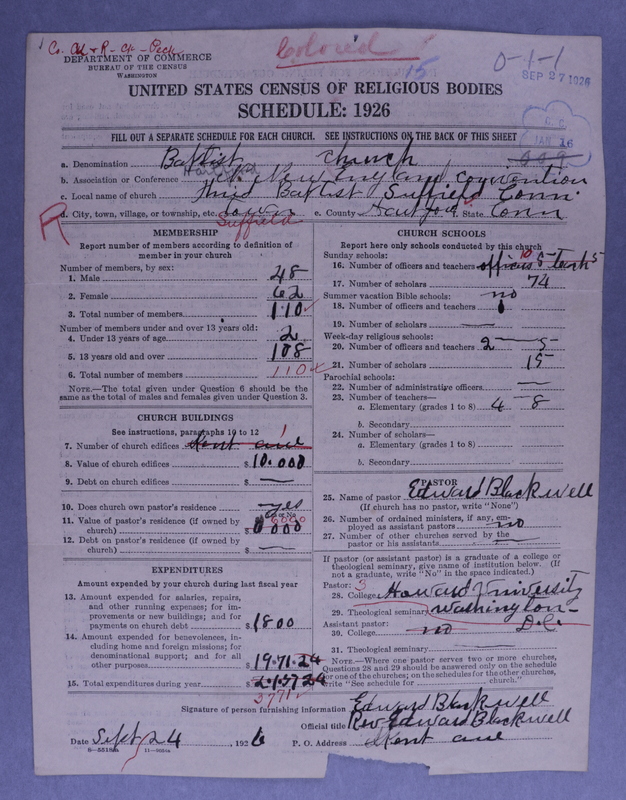 Co. Ch + R - Ck - Peck
Colored
0-1-1
DEPARTMENT OF COMMERCE
BUREAU OF THE CENSUS
WASHINGTON
15
SEP 27 1926
UNITED STATES CENSUS OF RELIGIOUS BODIES
SCHEDULE: 1926
JAN 16
FILL OUT A SEPARATE SCHEDULE FOR EACH CHURCH. SEE INSTRUCTIONS ON THE BACK OF THIS SHEET
a. Denomination Baptist church
b. Association or Conference New England Convention
c. Local name of church Third Baptist Suffield Conn.
d. City, town, village, or township, etc. town Suffield e. County Hartford State Conn
R
MEMBERSHIP
Report number of members according to definition of member in your church
Number of members, by sex:
1. Male 48
2. Female 62
3. Total number of members 110
Number of members under and over 13 years old:
4. Under 13 years of age 2
5. 13 years old and over 108
6. Total number of members 110
NOTE.—The total given under Question 6 should be the same as the total of males and females given under Question 3.
CHURCH BUILDINGS
See instructions, paragraphs 10 to 12
7. Number of church edifices Kent ave 1
8. Value of church edifices $ 10.000
9. Debt on church edifices $ —
10. Does church own pastor's residence yes
Yes or No
11. Value of pastor's residence (if owned by church) $ 6000
12. Debt on pastor's residence (if owned by church) $ —
EXPENDITURES
Amount expended by your church during last fiscal year
13. Amount expended for salaries, repairs, and other running expenses; for improvements or new buildings; and for payments on church debt $ 1800
14. Amount expended for benevolences, including home and foreign missions; for denominational support; and for all other purposes $ 1971.24
15. Total expenditures during year $ 2157 24
3771
CHURCH SCHOOLS
Report here only schools conducted by this church
Sunday schools:
16. Number of officers and teachers officers 5 Teach 5
10
17. Number of scholars 74
Summer vacation Bible schools: no
18. Number of officers and teachers
19. Number of scholars —
Week-day religious schools:
20. Number of officers and teachers 2 5
21. Number of scholars 15
Parochial schools:
22. Number of administrative officers —
23. Number of teachers—
a. Elementary (grades 1 to 8) 4 - 8
b. Secondary
24. Number of scholars—
a. Elementary (grades 1 to 8) —
b. Secondary
PASTOR
25. Name of pastor Edward Blackwell
(If church has no pastor, write "None")
26. Number of ordained ministers, if any, employed as assistant pastors no
27. Number of other churches served by the pastor or his assistants —
If pastor (or assistant pastor) is a graduate of a college or theological seminary, give name of institution below. (If not a graduate, write "No" in the space indicated.)
Pastor: 3
28. College Howard University
29. Theological seminary Washington -
Assistant pastor: D.C.
30. College no
31. Theological seminary —
NOTE.—Where one pastor serves two or more churches, Questions 28 and 29 should be answered only on the schedule for one of the churches; on the schedules for the other churches, write "See schedule for church."
Signature of person furnishing information Edward Blackwell
Official title Rev Edward Blackwell
Date Sept 24 , 1926 P. O. Address Kent ave